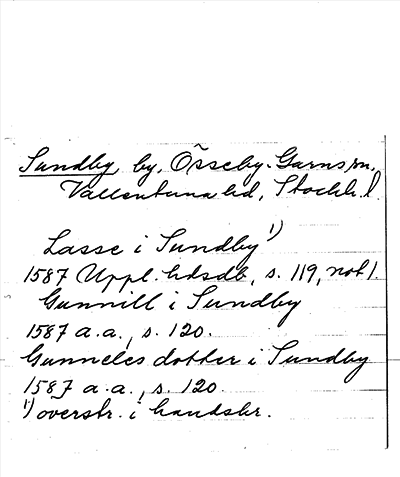 Sundby, by, Össeby-Garns sn,
Vallentuna hd, Stockh. l.
Lasse i Sundby 1)
1587 Uppl. hdsdb, s. 119, not 1.
Gunnill i Sundby
1587 a.a., s. 120.
Gunneles dotter i Sundby
1587 a.a., s. 120.
1) överstr. i handskr.